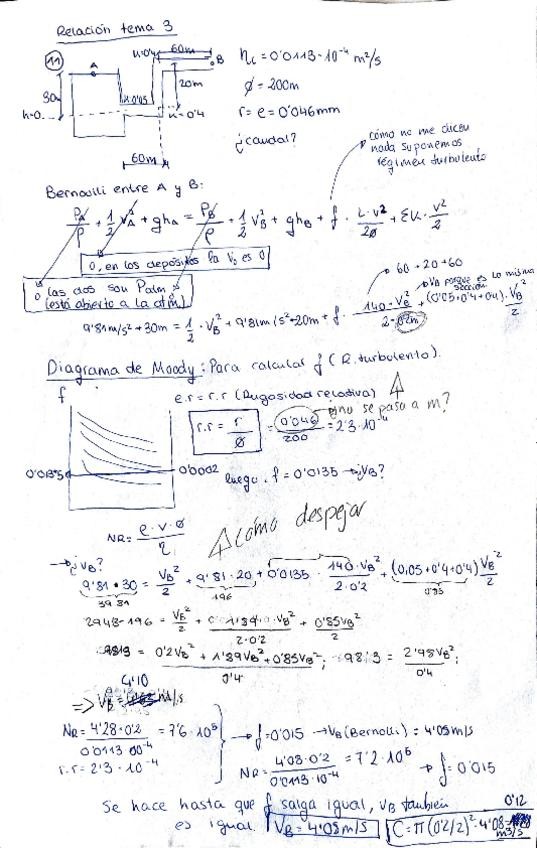 Relación tema 3
11
A
B
K=0'4
60m
20m
30m
K=0'05
K=0'4
h=0
60m
η_c = 0'0113·10⁻⁴ m²/s
ø = 200m
r = e = 0'046mm
¿caudal?
como no me dicen
nada suponemos
régimen turbulento
Bernoulli entre A y B:
P_A/ρ + 1/2 V_A² + gh_A = P_B/ρ + 1/2 V_B² + gh_B + f · L·V²/2ø + ΣK · V²/2
0, en los depósitos la V_s es 0
0 las dos son Patm
(está abierto a la atm)
60+20+60
V_B porque es la misma
sección
9'81m/s² * 30m = 1/2 · V_B² + 9'81m/s² * 20m + f · 140·V_B²/2·02m + (0'05+0'4+0'4) · V_B²/2
Diagrama de Moody: Para calcular f (R. turbulento).
f
e.r = r.r (Rugosidad relativa)
r.r = r/ø = 0'046/200 = 2'3·10⁻⁴
no se pasa a m?
0'0135
0'0002
luego f = 0'0135 → ¿V_B?
NR = ρ·v·ø/η
como despejar
→ ¿V_B?
9'81·30 = V_B²/2 + 9'81·20 + 0'0135 · 140·V_B²/2·0'2 + (0,05+0'4+0'4) V_B²/2
196
+ 0'85V_B²/2
= 0'2V_B² + 1'89V_B² + 0'85V_B²/0'4; 98'3 = 2'98V_B²/0'4;
4'10
=> V_B = m/s
NR = 4'28·0'2/0'0113·10⁻⁴ = 7'6·10⁵
r.r = 2'3·10⁻⁴
→ f=0'015 → V_B (Bernolli) = 4'05m/s
NR = 4'08·0'2/0'0113·10⁻⁴ = 7'2·10⁵ → f = 0'015
Se hace hasta que f salga igual, V_B también
es igual. V_B = 4'05m/s
0'12
C = π(0'2/2)²·4'08= m3/s